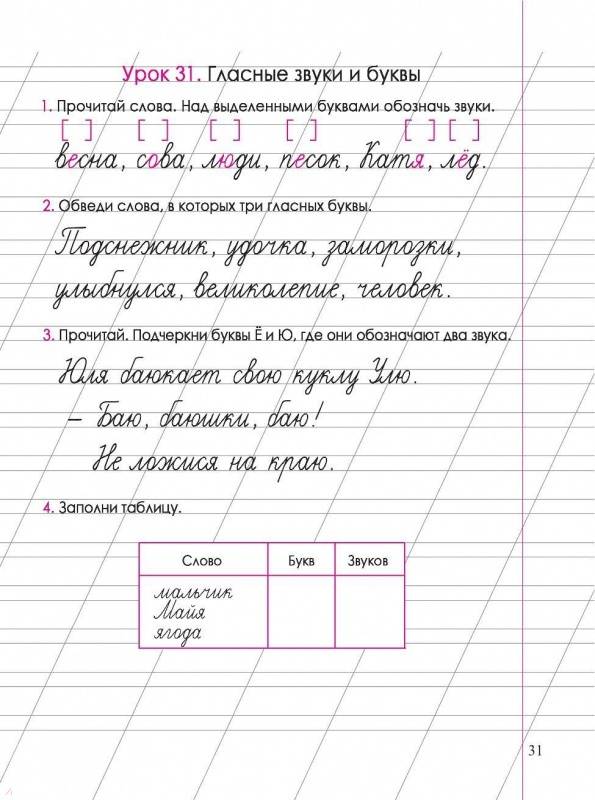 Урок 31. Гласные звуки и буквы
1. Прочитай слова. Над выделенными буквами обозначь звуки.
[ ] [ ] [ ] [ ] [ ] [ ]
весна, сова, люди, песок, Катя, лёд.
2. Обведи слова, в которых три гласных буквы.
Подснежник, удочка, заморозки,
улыбнулся, великолепие, человек.
3. Прочитай. Подчеркни буквы Ё и Ю, где они обозначают два звука.
Юля баюкает свою куклу Улю.
– Баю, баюшки, баю!
Не ложися на краю.
4. Заполни таблицу.
Слово Букв Звуков
мальчик
Майя
ягода
31